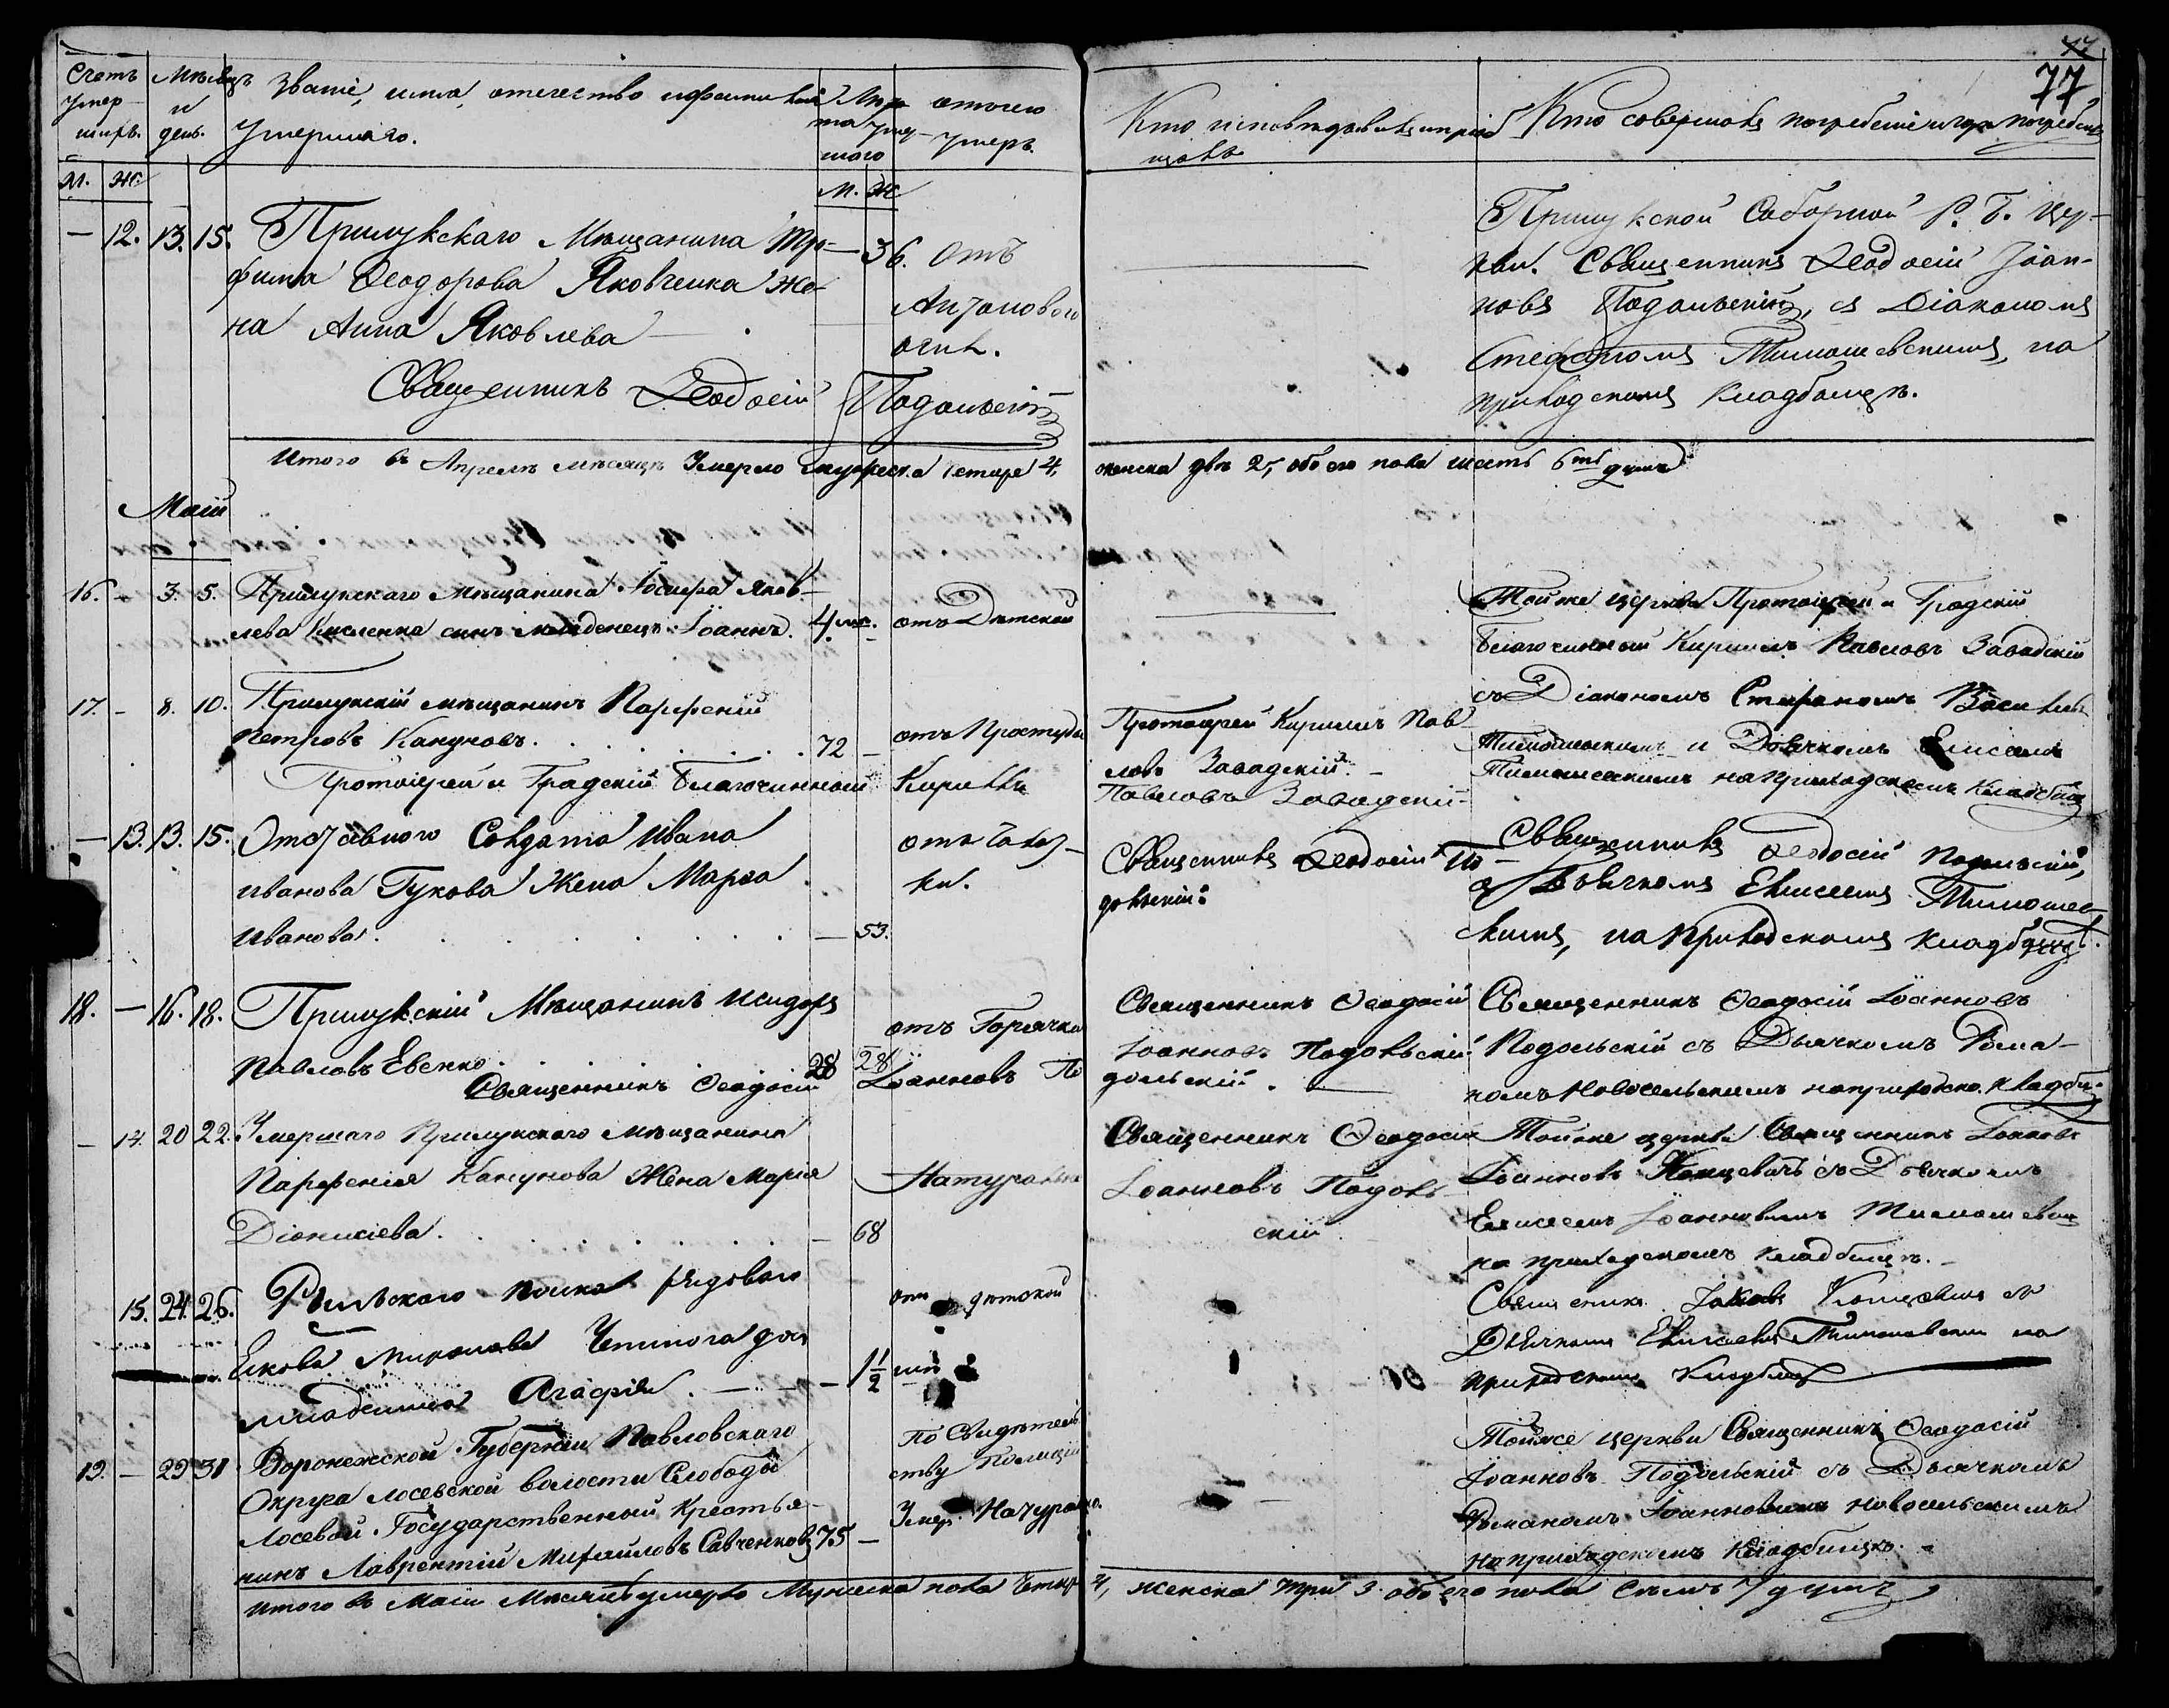 77
Счетъ умер-шихъ.
Мѣсяцъ и день.
Званіе, имя, отечество и фамилія умершаго.
Лѣта умер-шаго
отъ чего умеръ.
Кто исповѣдывалъ и пріоб-щалъ
Кто совершалъ погребеніе и гдѣ погребены
М. Ж. М. Ж.
— 12. 13. 15. Прилукскаго Мѣщанина Тро-
фима Ѳеодорова Яковченка же-
на Анна Яковлева — 36.
отъ
Антонового
огня.
Прилукской Соборной Р. Б. Цер-
кви. Священникъ Ѳеодосій Іоан-
новъ Подольскій, съ Діакономъ
Стефаномъ Тимошевскимъ, на
приходскомъ кладбищѣ.
Священникъ Ѳеодосій Подольскій
Итого въ Апрелѣ мѣсяцѣ умерло мужеска четыре 4, женска двѣ 2, обоего пола шесть 6ть душъ
Маій
16. — 3. 5. Прилукскаго мѣщанина Іосифа Яков-
лева Кисленка синъ младенецъ Іоаннъ. 4 мѣс.
отъ Дѣтской
Тойже церкви Протоіерей и Градскій
Благочинный Кириллъ Павловъ Завадскій
съ Діакономъ Стефаномъ Василіев.
Тимошевскимъ и Дьячкомъ Елисеемъ
Тимошевскимъ на приходскомъ кладбищѣ
17. — 8. 10. Прилукскій мѣщанинъ Парфеній
Петровъ Кануновъ. 72 —
отъ Простуды
Протоіерей Кириллъ Пав-
ловъ Завадскій. —
Протоіерей и Градскій Благочинный Кириллъ Павловъ Завадскій
— 13. 13. 15. Отставного Солдата Ивана
Иванова Гукова Жена Марѳа
Иванова. — 53.
отъ Чахот-
ки.
Священникъ Ѳеодосій По-
дольскій.
Священникъ Ѳеодосій Подольскій,
съ Дьячкомъ Елисеемъ Тимошев-
скимъ, на приходскомъ кладбищѣ.
18. — 16. 18. Прилукскій Мѣщанинъ Исидоръ
Павловъ Евенко. 28 28
отъ Горячки
Священникъ Ѳеодосій
Іоанновъ Подольскій
Священникъ Ѳеодосій Іоанновъ
Подольскій съ Дьячкомъ Рома-
номъ Новосельскимъ на приходско. кладби.
Священникъ Ѳеодосій Іоанновъ По дольскій.
— 14. 20 22. Умершаго Прилукскаго мѣщанина
Парфенія Канунова Жена Марія
Діонисіева. — 68
Натурально
Священникъ Ѳеодосій
Іоанновъ Подоль-
скій
Тойже церкви Священникъ Іаковъ
Іоанновъ Концевичъ съ Дьячкомъ
Елисеемъ Іоанновымъ Тимошевским
на приходскомъ кладбищѣ. —
15. 24. 26. Рыльскаго полка рядового
Якова Миронова дочь
младеница Агафія. — 1 1/2
отъ дѣтской
Священникъ Іаковъ Концевичъ съ
Дьячкомъ Елисеемъ Тимошевским на
приходскомъ кладбищѣ
19. — 29 31 Воронежской Губерніи Павловскаго
Округа Лосевской волости Слободы
Лосевой Государственный Крестья-
нинъ Лаврентій Михайловъ Савченковъ 75 —
По Свидѣтель-
ству Полиціи
Умеръ Натурально.
Тойже церкви Священникъ Ѳеодосій
Іоанновъ Подольскій съ Дьячкомъ
Романомъ Іоанновымъ Новосельскимъ
на приходскомъ кладбищѣ. —
Итого въ Маіи Мѣсяцѣ умерло Мужеска пола Четыр 4, женска три 3 обоего пола семъ 7 душъ